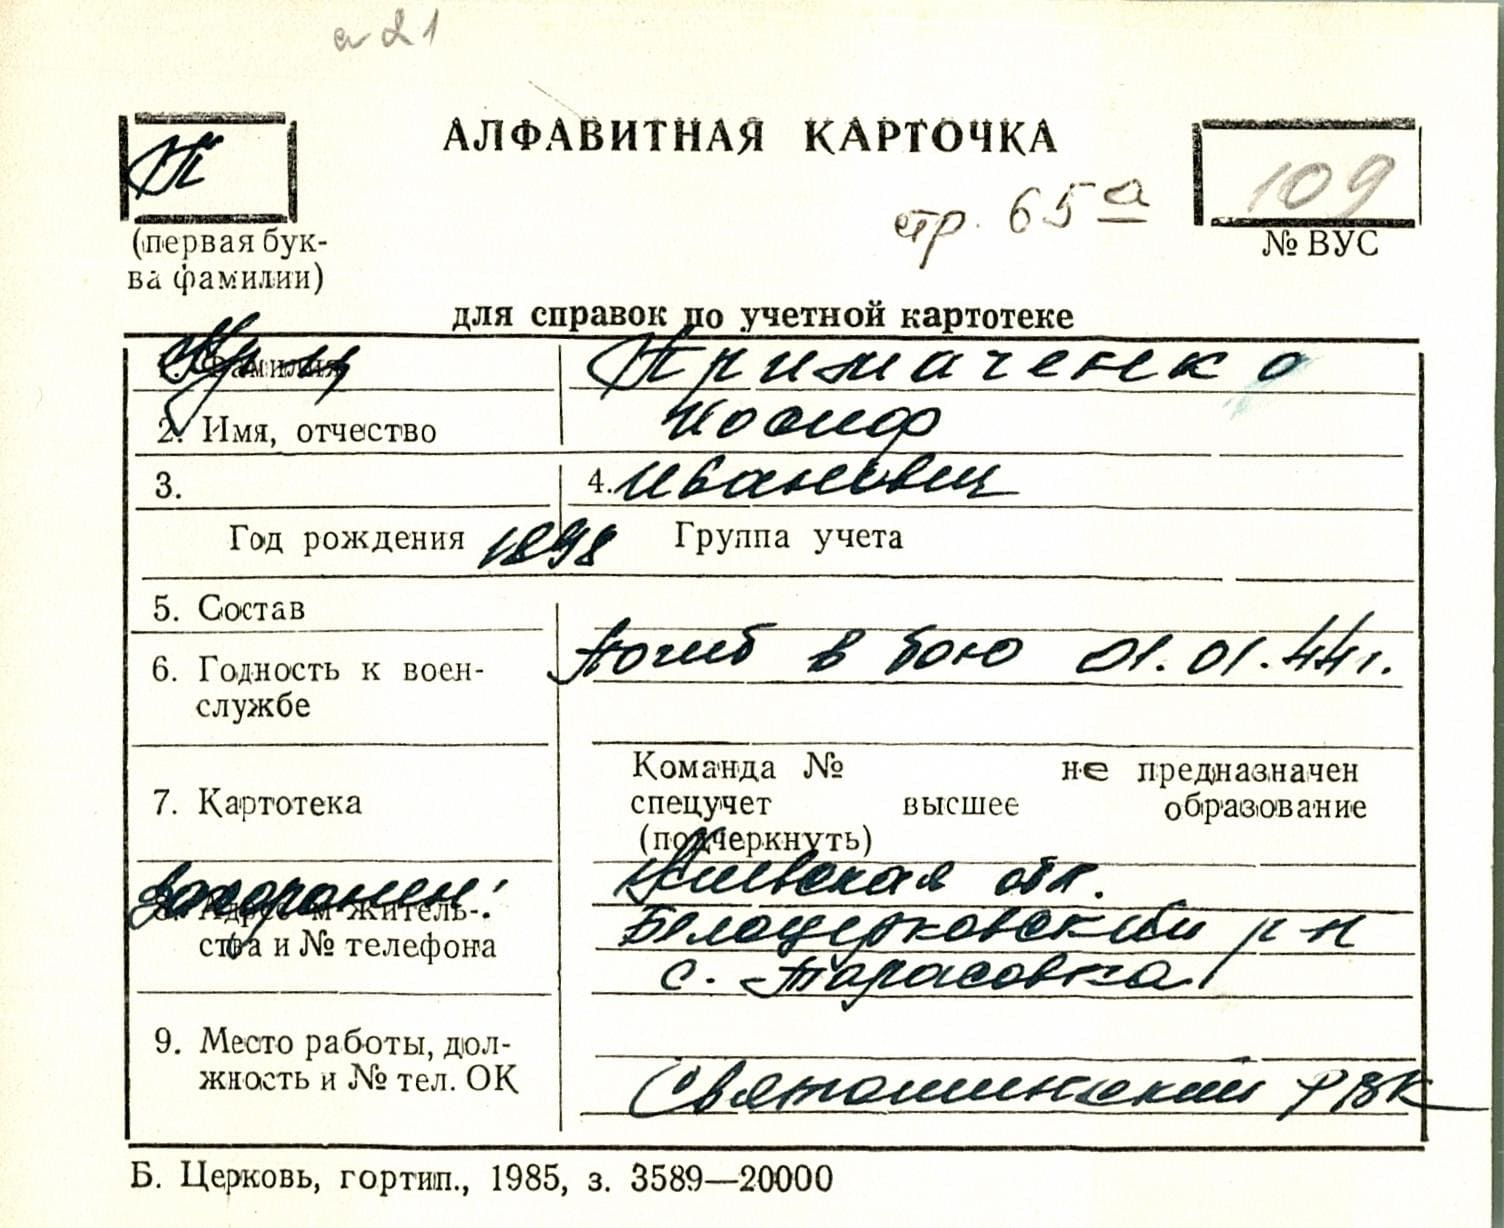 а 21
П
АЛФАВИТНАЯ КАРТОЧКА
109
стр. 65 а
№ ВУС
(первая бук-
ва фамилии)
для справок по учетной картотеке
1. Фамилия
Примаченко
2. Имя, отчество
Иосиф
3.
4. Иванович
Год рождения 1898 Группа учета
5. Состав
Погиб в бою 01.01.44г.
6. Годность к воен-
службе
7. Картотека
Команда № не предназначен
спецучет высшее образование
(подчеркнуть)
захоронен:
Киевская обл.
8. Адрес м-житель-
ства и № телефона
Белоцерковский р-н
с. Тарасовка
9. Место работы, дол-
жность и № тел. ОК
Святошинский РВК
Б. Церковь, гортип., 1985, з. 3589—20000